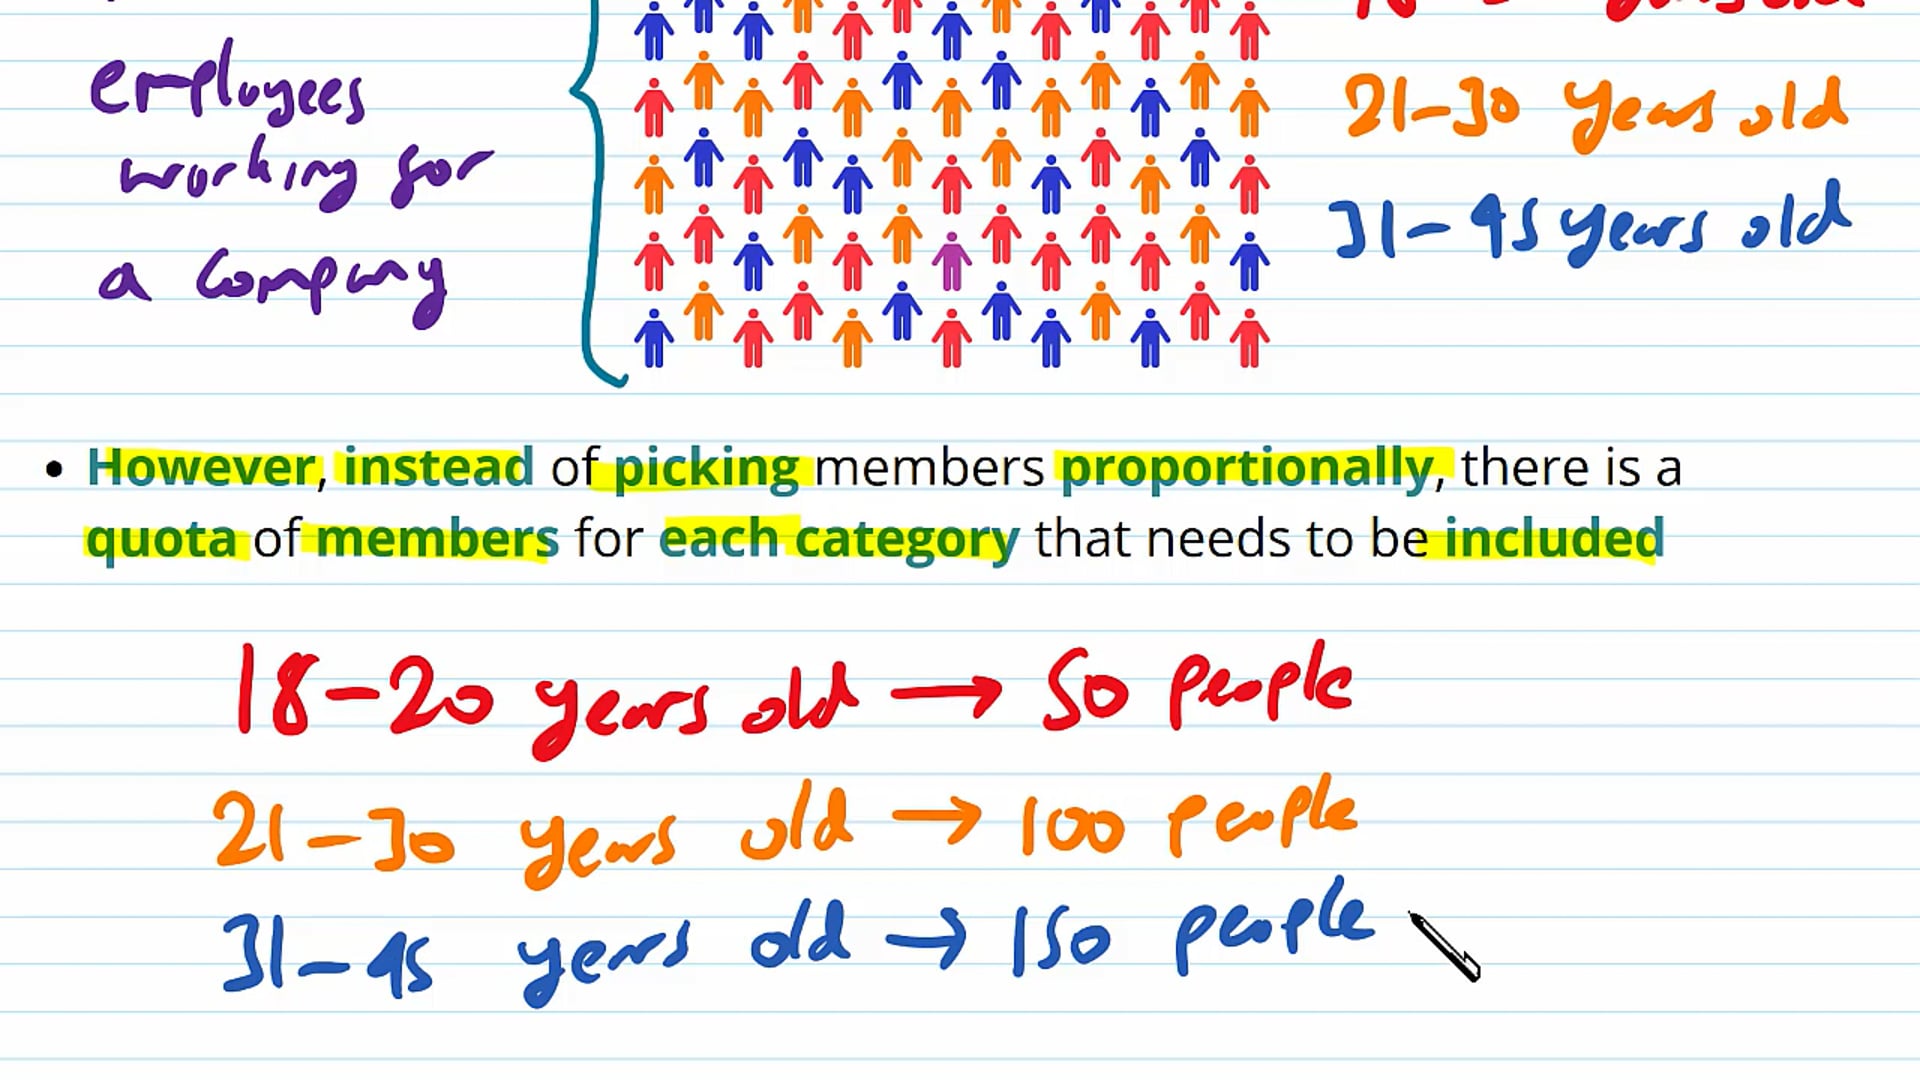 years old
employees
21-30 years old
working for
31-45 years old
a company
• However, instead of picking members proportionally, there is a
quota of members for each category that needs to be included
18-20 years old → 50 people
21-30 years old → 100 people
31-45 years old → 150 people